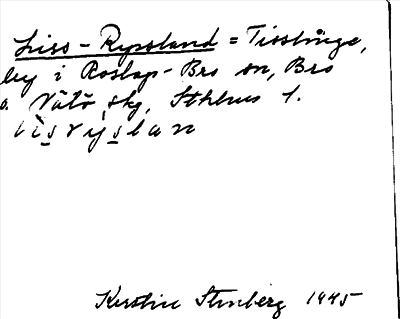 Liss-Ryssland = Tisslinge,
by i Roslags-Bro sn, Bro
o. Vätö skg, Sthlms l.
lisryslan
Kerstin Stenberg 1945